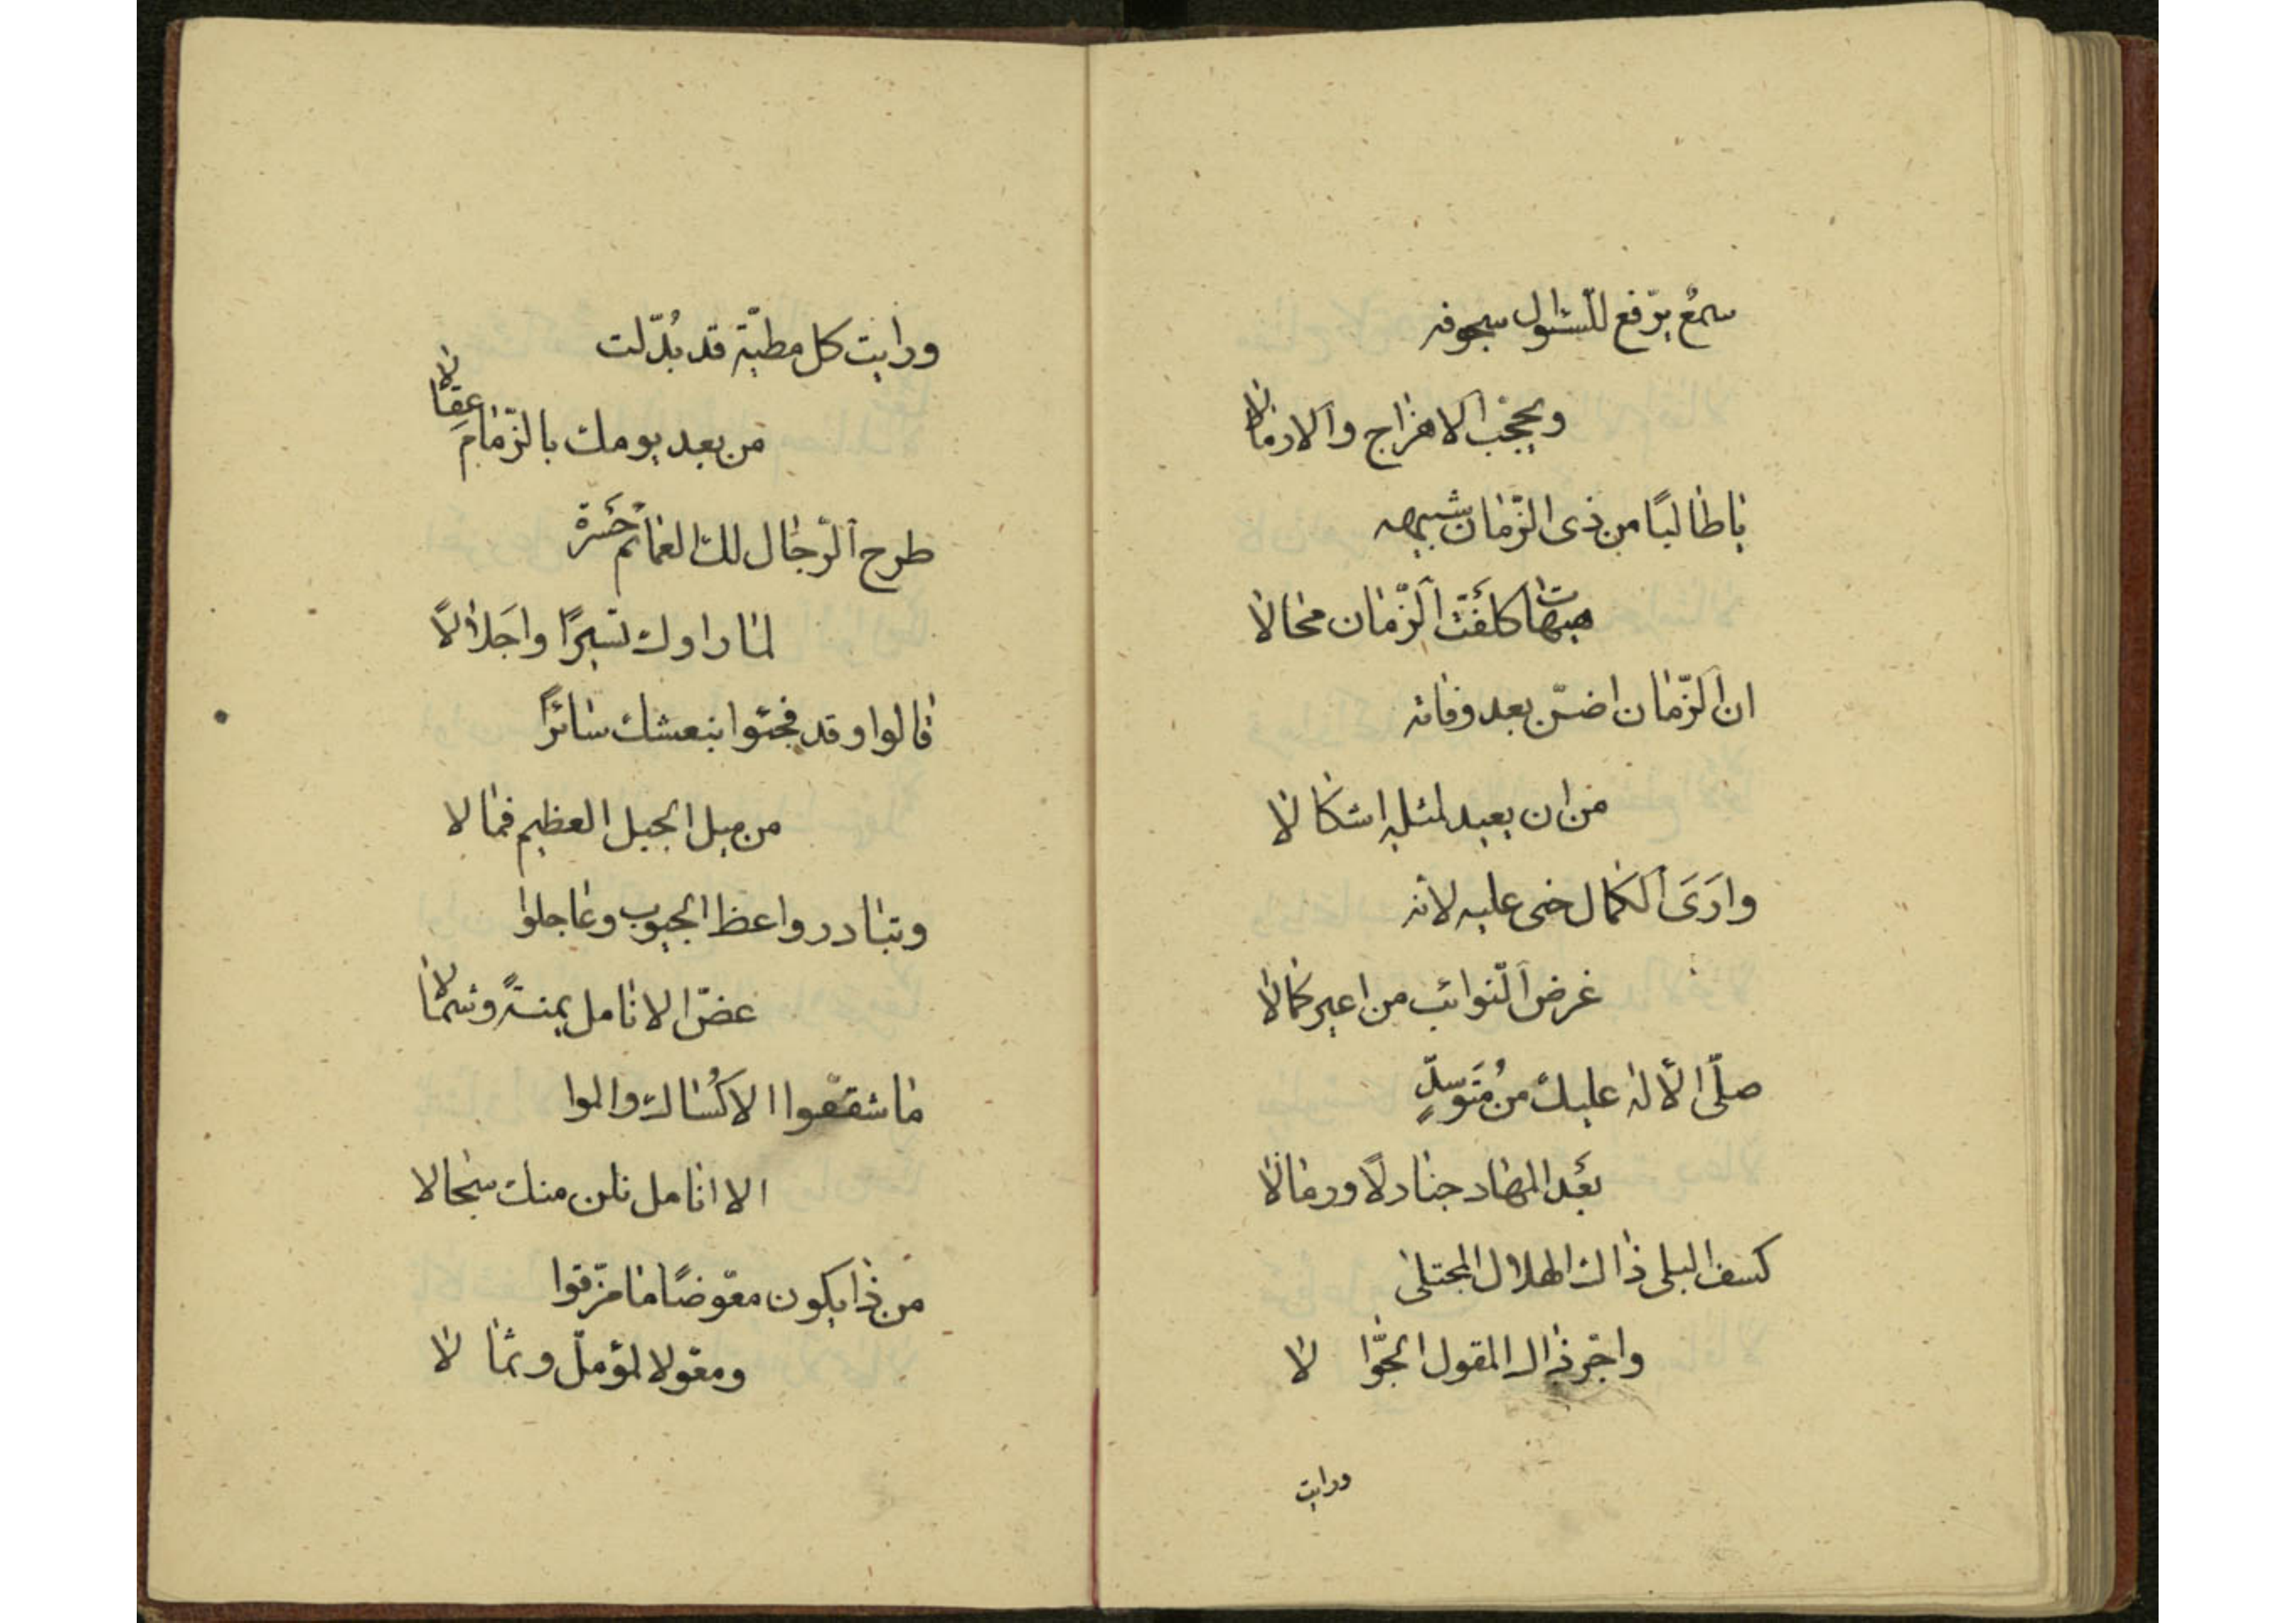 سمعٌ يرّفع للسّئوال سجوفه
ويحجّب الاهزاج والارمالا
يا طالبًا من ذى الزّمان شبيهه
هيهات كلّفت الزّمان محالا
ان الزّمان اضنّ بعد وفاته
من ان يعيد لمثله اشكالا
وارَى الكمال جنى عليه لانه
غرض النّوائب من اعير كمالا
صلّى الاله عليك من مُتوسّدٍ
بعد المهاد جنادلًا ورمالا
كسف البلى ذاك الهلال المجتلى
واجرّ ذاك المقول الجوّالا
ورايت
ورايت كل مطيّة قد بُدّلت
من بعد يومك بالزّمام عِقالا
طرح الرّجال لك العمائم حَسْرة
لما راوك تسير واجَلالًا
قالوا وقد فجئوا بنعشك سائرًا
من ميل الجبل العظيم فمالا
وتبادروا عظ الجيوب وعاجلوا
عضّ الانامل يمنةً وشمالا
ما شقّقوا الا كُساك والموا
الا انامل نلن منك سجالا
من ذا يكون معوّضًا ما مزّقوا
ومعولا لمؤمل وثمالا